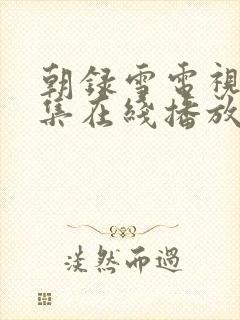 朝録雪電視
集在綫播放
淡然而過